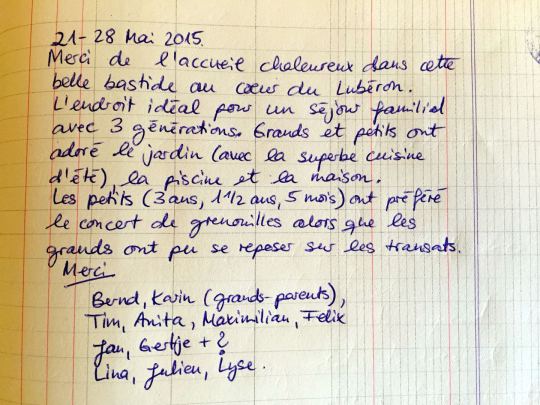 21-28 Mai 2015.
Merci de l'accueil chaleureux dans cette
belle bastide au cœur du Lubéron.
L'endroit idéal pour un séjour familial
avec 3 générations. Grands et petits ont
adoré le jardin (avec la superbe cuisine
d'été), la piscine et la maison.
Les petits (3 ans, 1 1/2 ans, 5 mois) ont préféré
le concert de grenouilles alors que les
grands ont pu se reposer sur les transats.
Merci
Bernd, Karin (grands-parents),
Tim, Anita, Maximilian, Felix
Jan, Gertje + ?
Lina, Julien, Lyse.